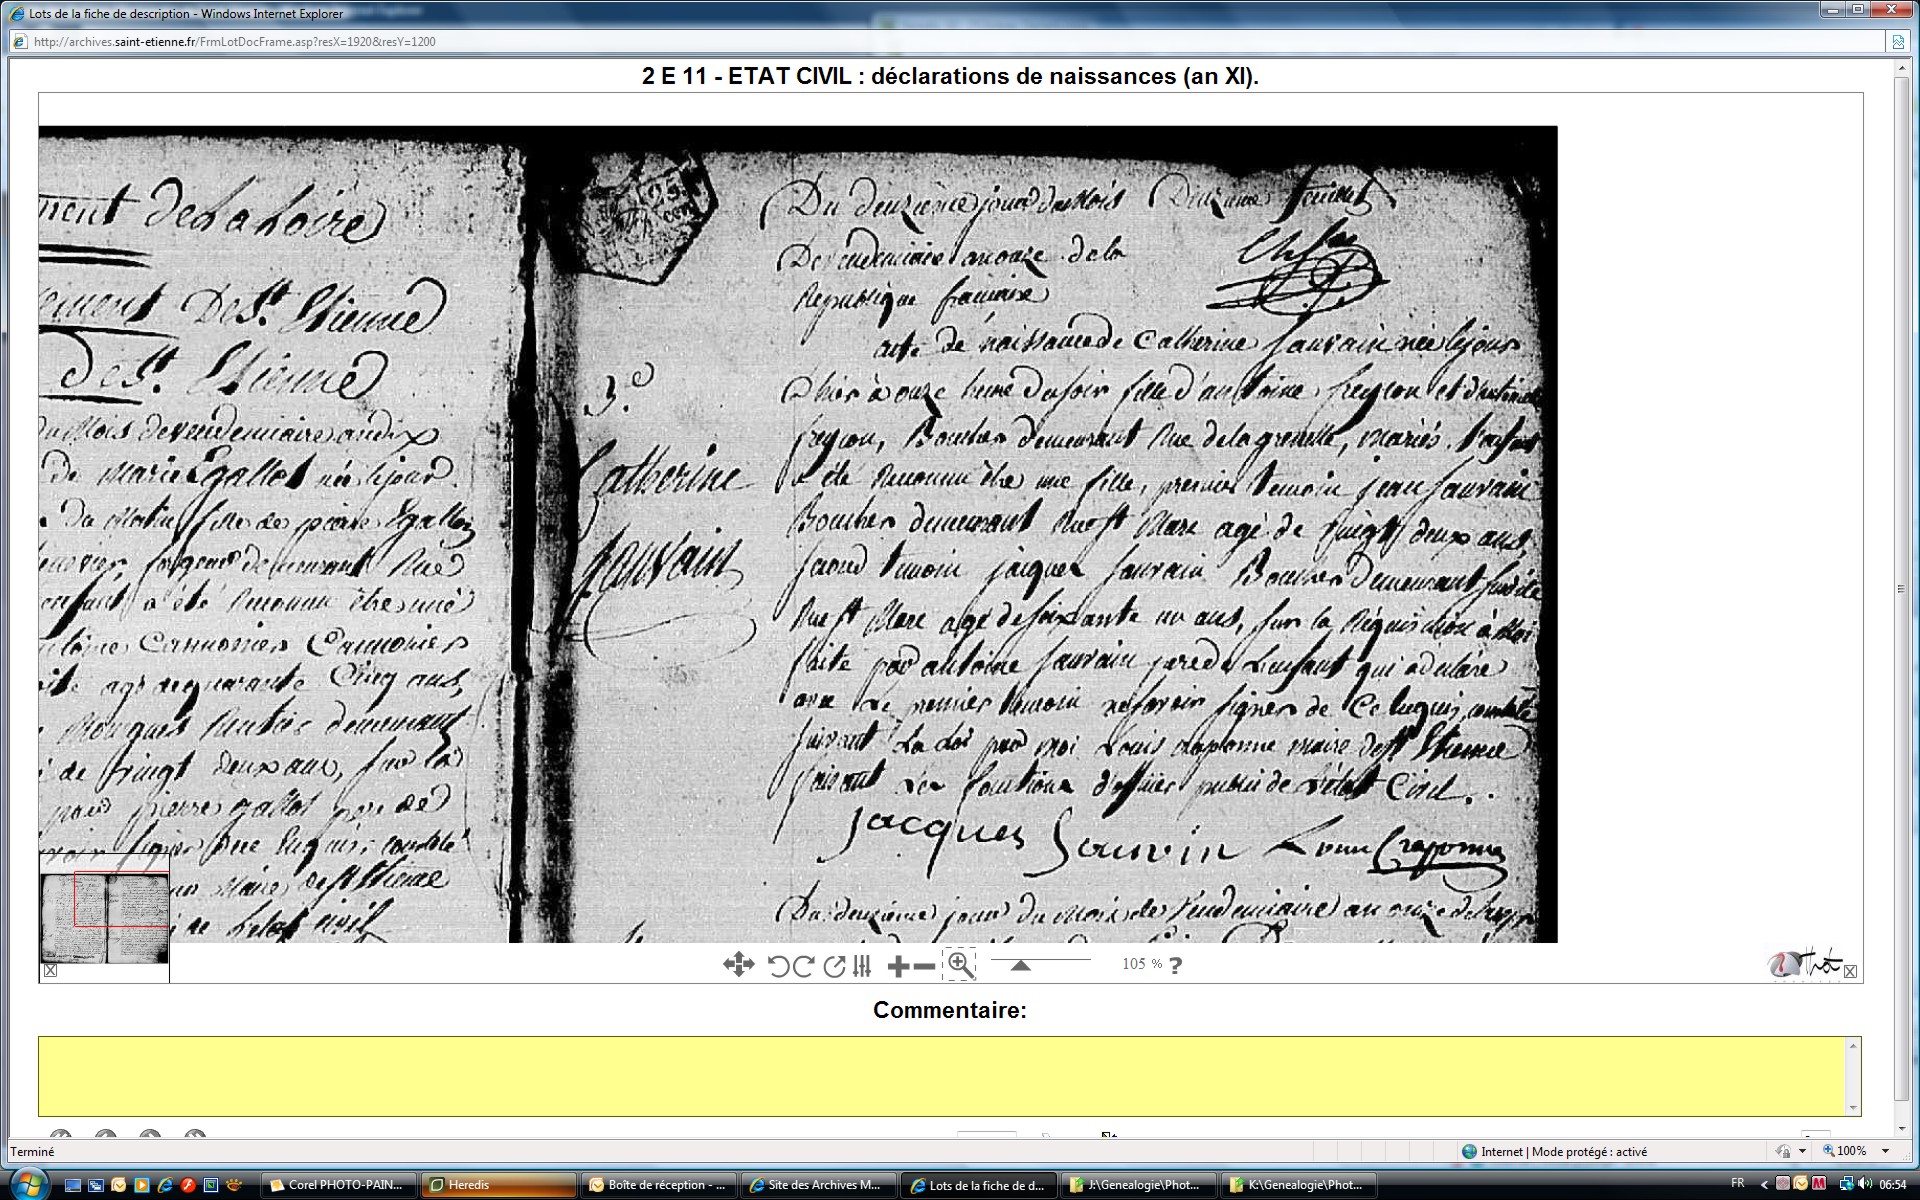 Lots de la fiche de description - Windows Internet Explorer
http://archives.saint-etienne.fr/FrmLotDocFrame.asp?resX=1920&resY=1200
2 E 11 - ETAT CIVIL : déclarations de naissances (an XI).
ment de la Loire
ement De St. Etienne
de St. Etienne
du Mois de vendemiaire an dix
de Marie Egallot née le jour
du Matin fille de pierre Egallot
forgeur demeurant Rue
enfant a été Reconnu être une
Cannonier
agé de quarante Cinq ans,
Rentier demeurant
de vingt deux ans, sur la
pierre gallot pere de
signer Ce Requis, constaté
Maire de St Etienne
de L'etat Civil
25
cen
Du deuzieme jour du Mois Deuzieme feuillet
De vendemiaire an onze de la
Republique francaise
acte de naissance de Catherine Sauvain née le jour
D'hier à onze heure du soir fille d'antoine, freycon et d'antoinette
freycon, Boucher demeurant Rue de la grenette, mariés. L'enfant
a été Reconnu être une fille, premier temoin jean Sauvain
Boucher demeurant Rue St Marc agé de vingt deux ans,
second temoin jacques Sauvain Boucher demeurant susdite
Rue St Marc agé de soixante un ans, sur la Requisition à Moi
faite par antoine Sauvain pere de L'enfant qui a déclaré
avec Le premier temoin ne savoir signer de Ce Requis, constaté
suivant La Loi par moi Louis crapponne maire de St Etienne
faisant Les fonctions d'officier public de L'état Civil.
3.e
Catherine
Sauvain
Jacques Souvin Louis Crapponne
Du deuzieme jour du Mois de Vendemiaire an onze de la rep
105 % ?
Commentaire:
Terminé
Internet | Mode protégé : activé
100%
Corel PHOTO-PAIN...
Heredis
Boîte de réception - ...
Site des Archives M...
Lots de la fiche de d...
J:\Genealogie\Phot...
K:\Genealogie\Phot...
FR
06:54